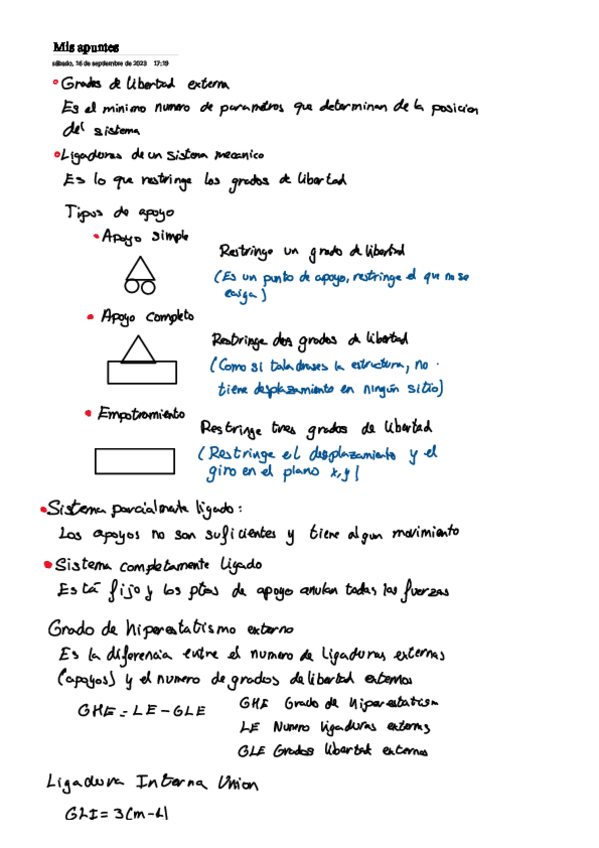 Mis apuntes
sábado, 16 de septiembre de 2023 17:19
Grados de libertad externa
Es el minimo numero de parametros que determinan de la posicion
del sistema
Ligaduras de un sistema mecanico
Es lo que restringe los grados de libertad
Tipos de apoyo
Apoyo simple
Restringe un grado de libertad
(Es un punto de apoyo, restringe el que no se
caiga)
Apoyo completo
Restringe dos grados de libertad
(Como si taladrases la estructura, no
tiene desplazamiento en ningún sitio)
Empotramiento
Restringe tres grados de libertad
(Restringe el desplazamiento y el
giro en el plano x,y)
Sistema parcialmente ligado:
Los apoyos no son suficientes y tiene algun movimiento
Sistema completamente ligado
Está fijo y los ptos de apoyo anulan todas las fuerzas
Grado de hiperestatismo externo
Es la diferencia entre el numero de ligaduras externas
(apoyos) y el numero de grados de libertad externos
GHE = LE - GLE
GHE Grado de hiperestatism
LE Numero ligaduras externas
GLE Grados libertad externos
Ligadura Interna Union
GLI = 3(m-1)